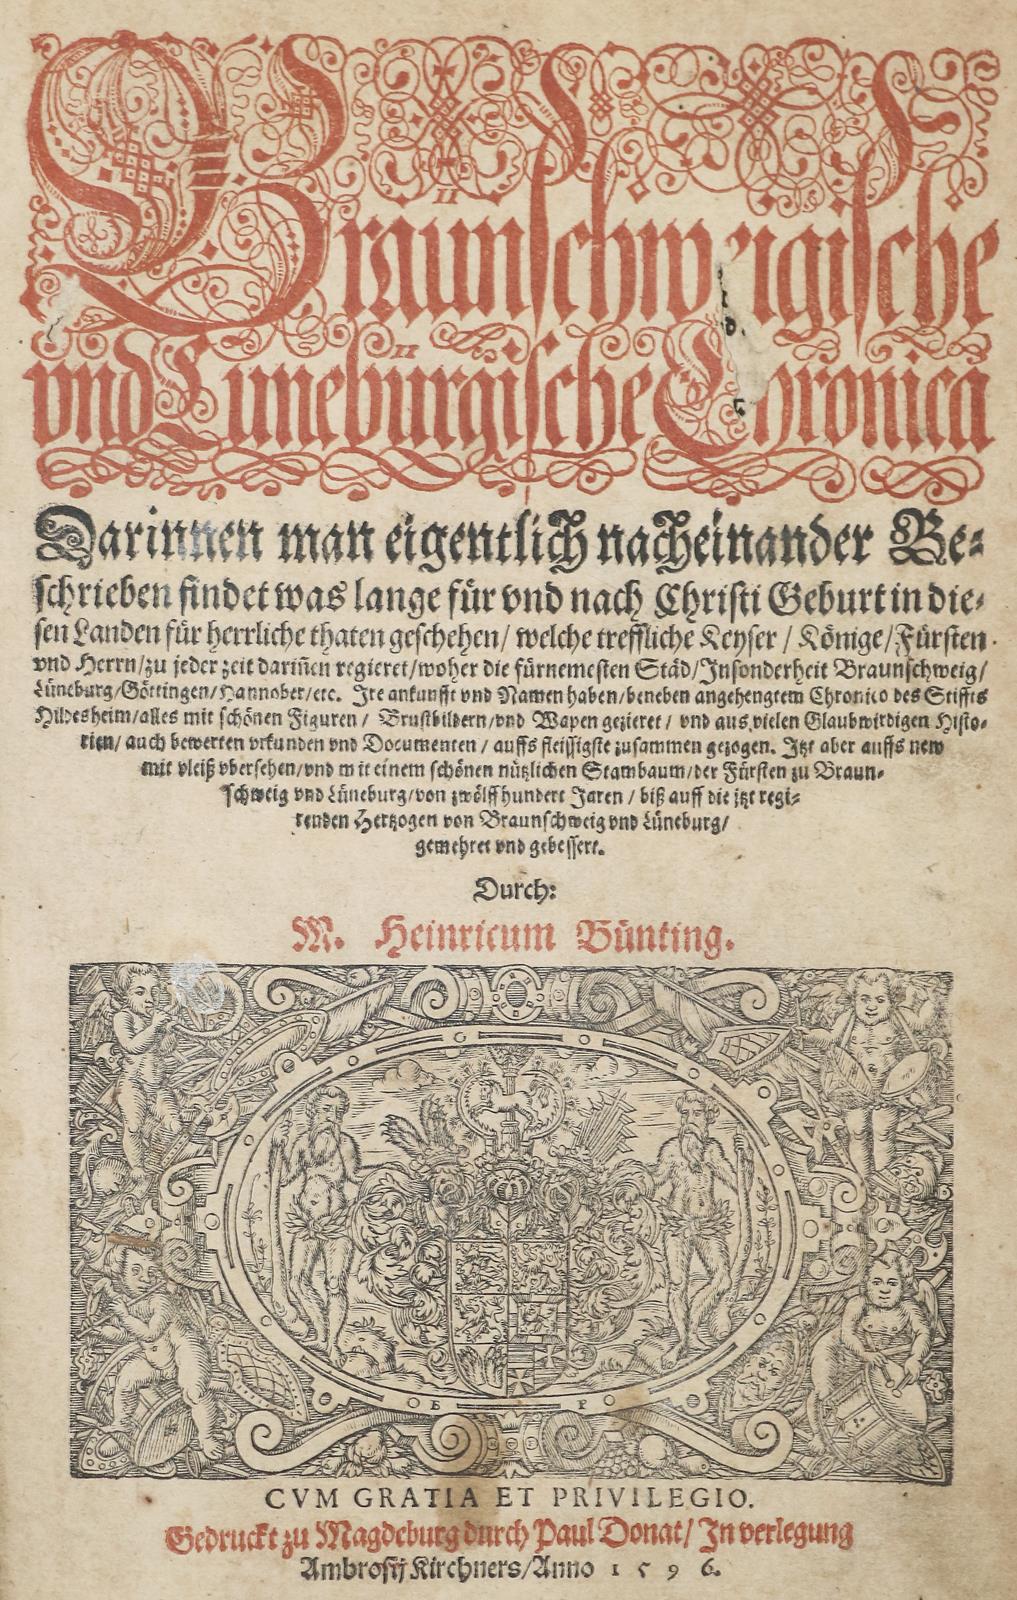 Braunschweigische
vnd Lüneburgische Chronica
Darinnen man eigentlich nacheinander Be-
schrieben findet was lange für vnd nach Christi Geburt in die-
sen Landen für herrliche thaten geschehen/ welche treffliche Keyser / Könige/ Fürsten
vnd Herrn/ zu jeder zeit dariñen regieret/ woher die fürnemesten Städ/ Insonderheit Braunschweig/
Lüneburg/ Göttingen/ Hannober/ etc. Ire ankunfft vnd Namen haben/ beneben angehengtem Chronico des Stiffts
Hildesheim/ alles mit schönen Figuren / Brustbildern/ vnd Wapen gezieret / vnd aus vielen Glaubwirdigen Histo-
rien/ auch bewerten vrkunden vnd Documenten / auffs fleissigste zusammen gezogen. Itzt aber auffs new
mit vleiß vbersehen/ vnd mit einem schönen nützlichen Stambaum/ der Fürsten zu Braun-
schweig vnd Lüneburg/ von zwölffhundert Jaren / biß auff die itzt regi-
renden Hertzogen von Braunschweig vnd Lüneburg/
gemehret vnd gebessert.
Durch:
M. Heinricum Bünting.
E P
CVM GRATIA ET PRIVILEGIO.
Gedruckt zu Magdeburg durch Paul Donat/ In verlegung
Ambrosij Kirchners/ Anno 1596.